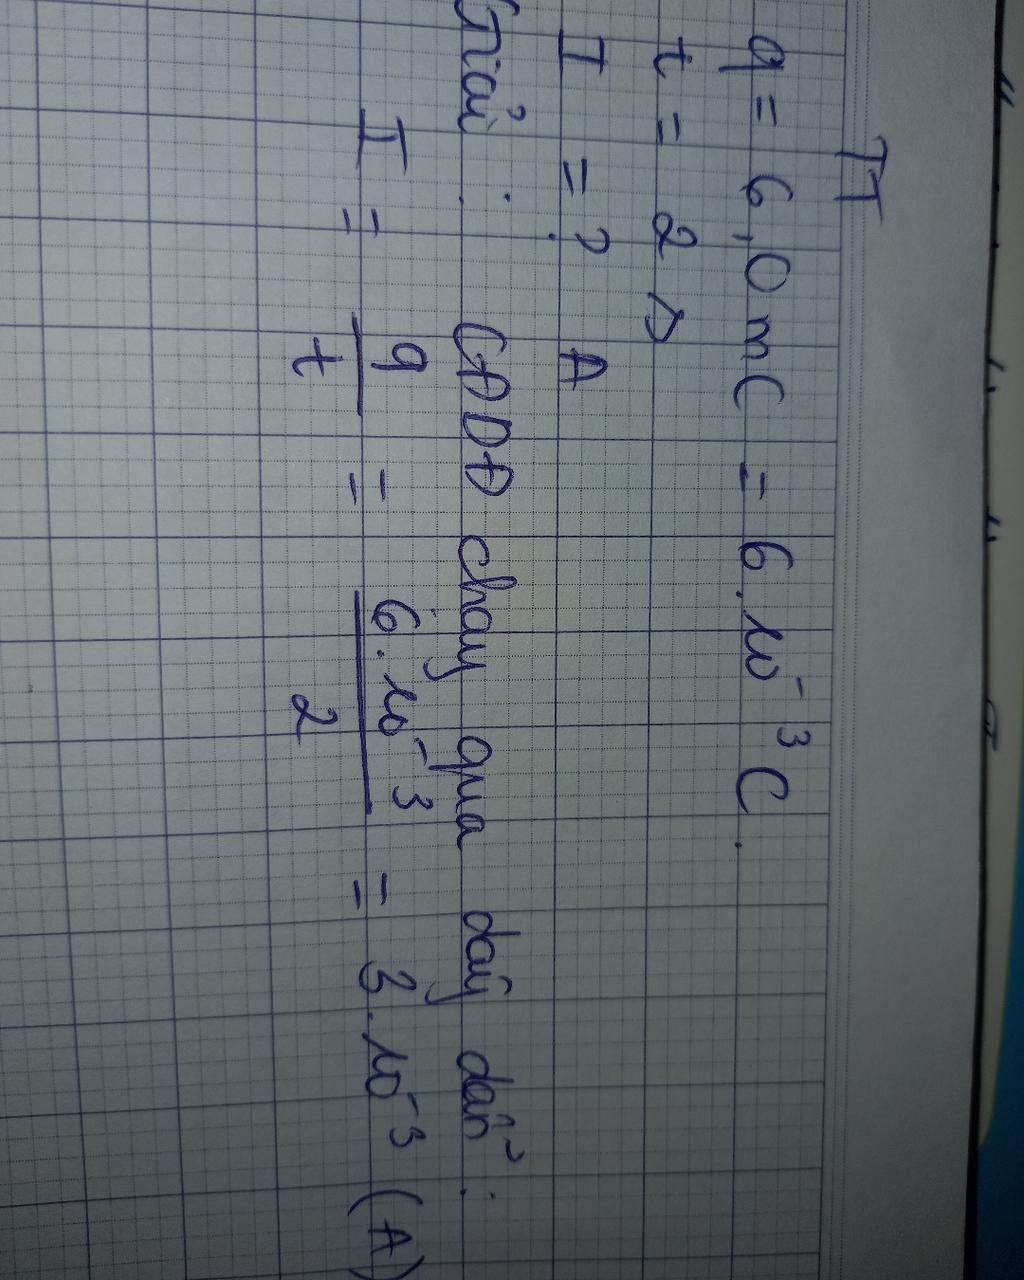 TT
q = 6,0 mC = 6.10⁻³ C.
t = 2 s
I = ? A
Giải : CĐDĐ chạy qua dây dẫn :
I = q/t = 6.10⁻³/2 = 3.10⁻³ (A)